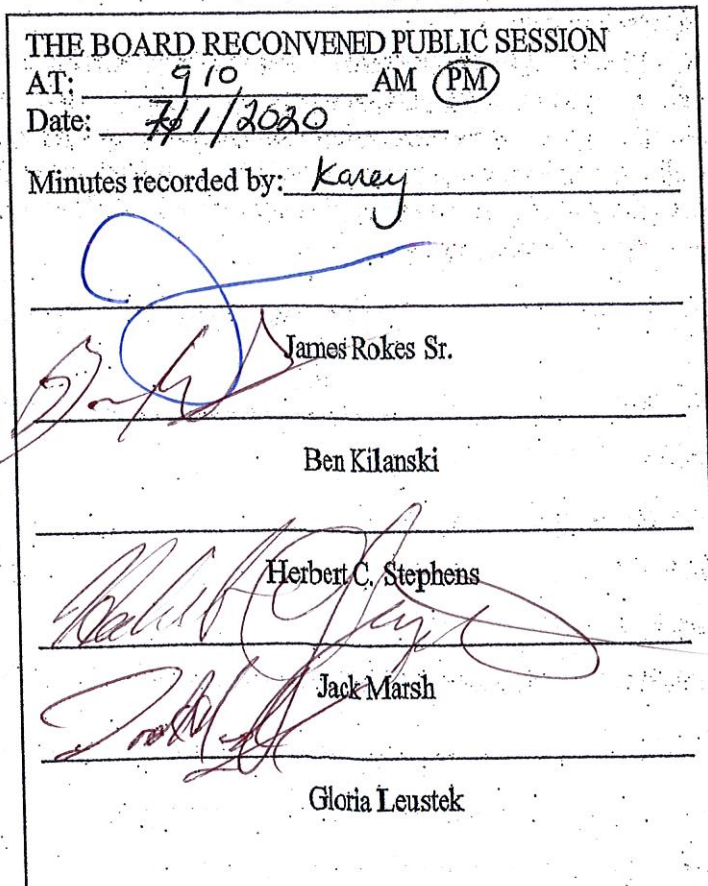 THE BOARD RECONVENED PUBLIC SESSION
AT: 9 10 AM PM
Date: 7/1/2020
Minutes recorded by: Karey
James Rokes Sr.
Ben Kilanski
Herbert C. Stephens
Jack Marsh
Gloria Leustek